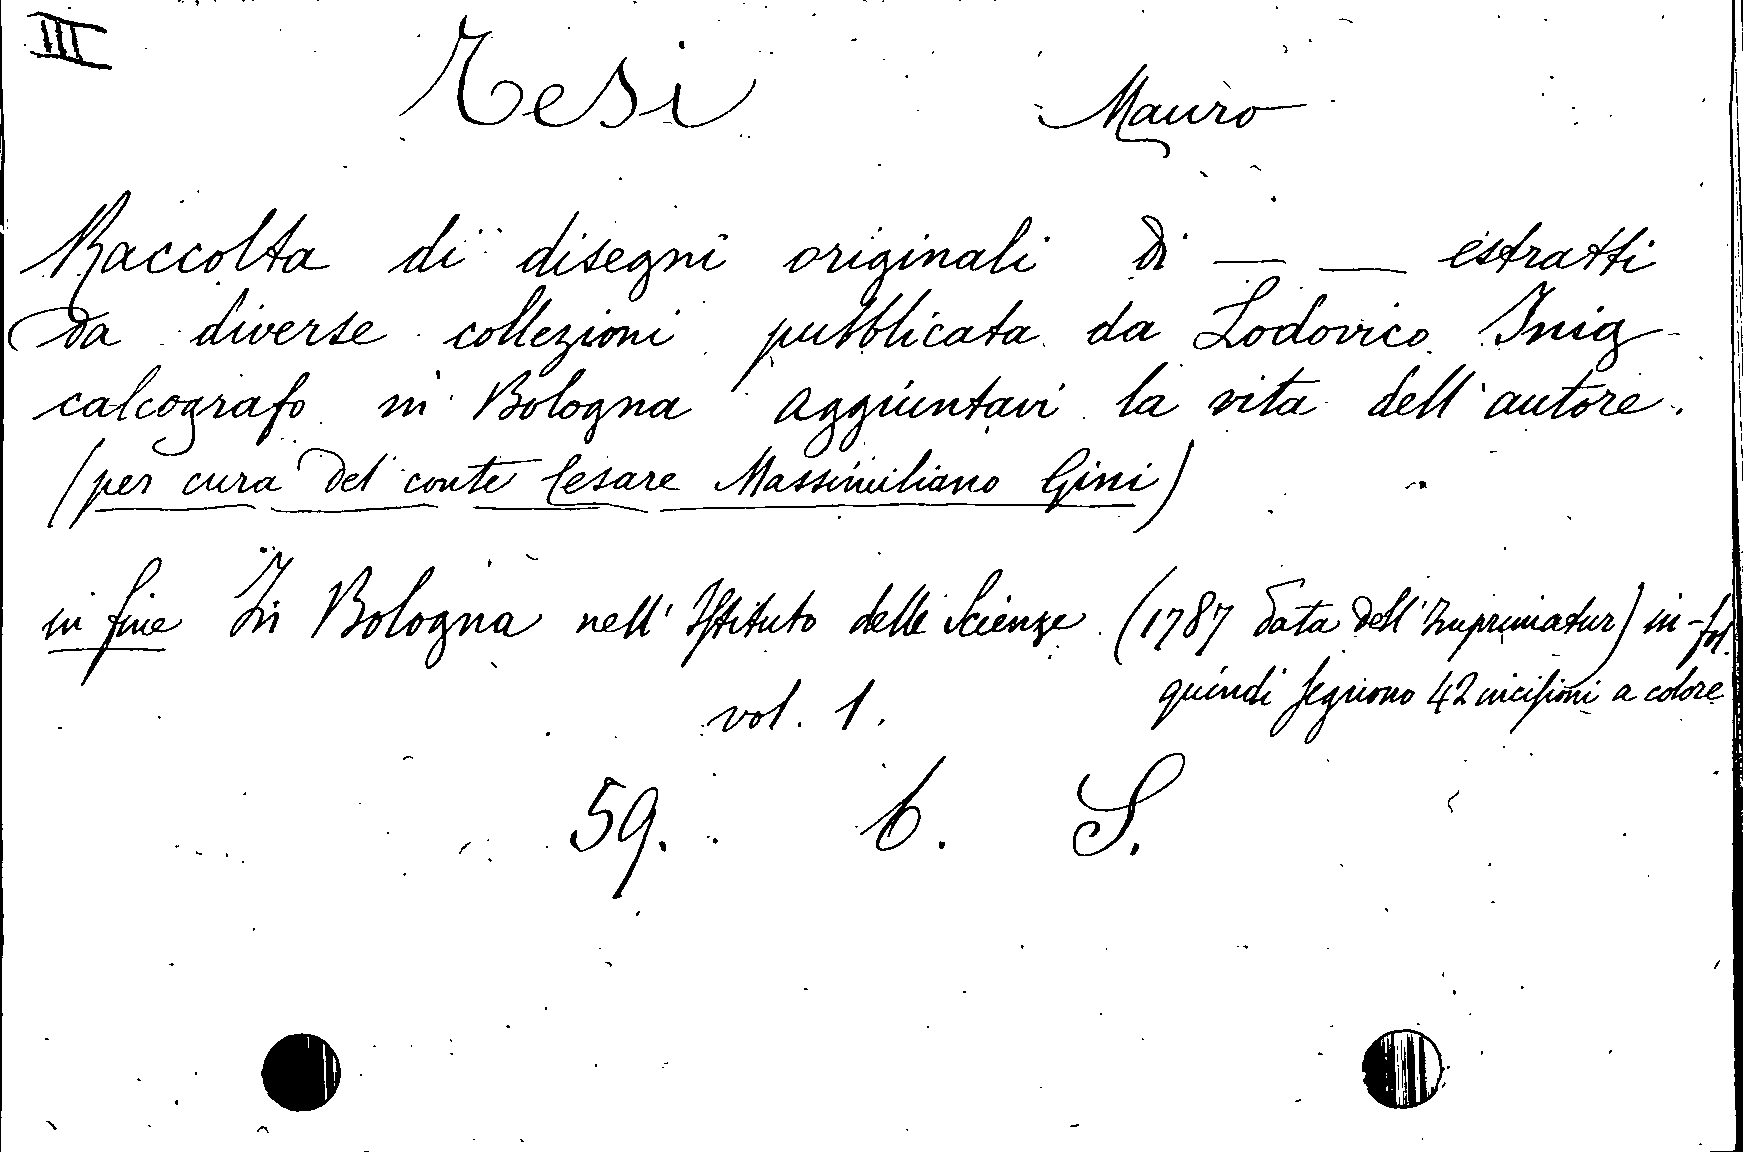 III
Tesi Mauro
Raccolta di disegni originali di — — estratti
da diverse collezioni pubblicata da Lodovico Inig
calcografo in Bologna aggiuntavi la vita dell'autore.
(per cura del conte Cesare Massimiliano Gini)
in fine In Bologna nell'Istituto delle Scienze (1787 data dell'Imprimatur) in-fol.
quindi seguono 42 incisioni a colore
vol. 1.
59. b. S.